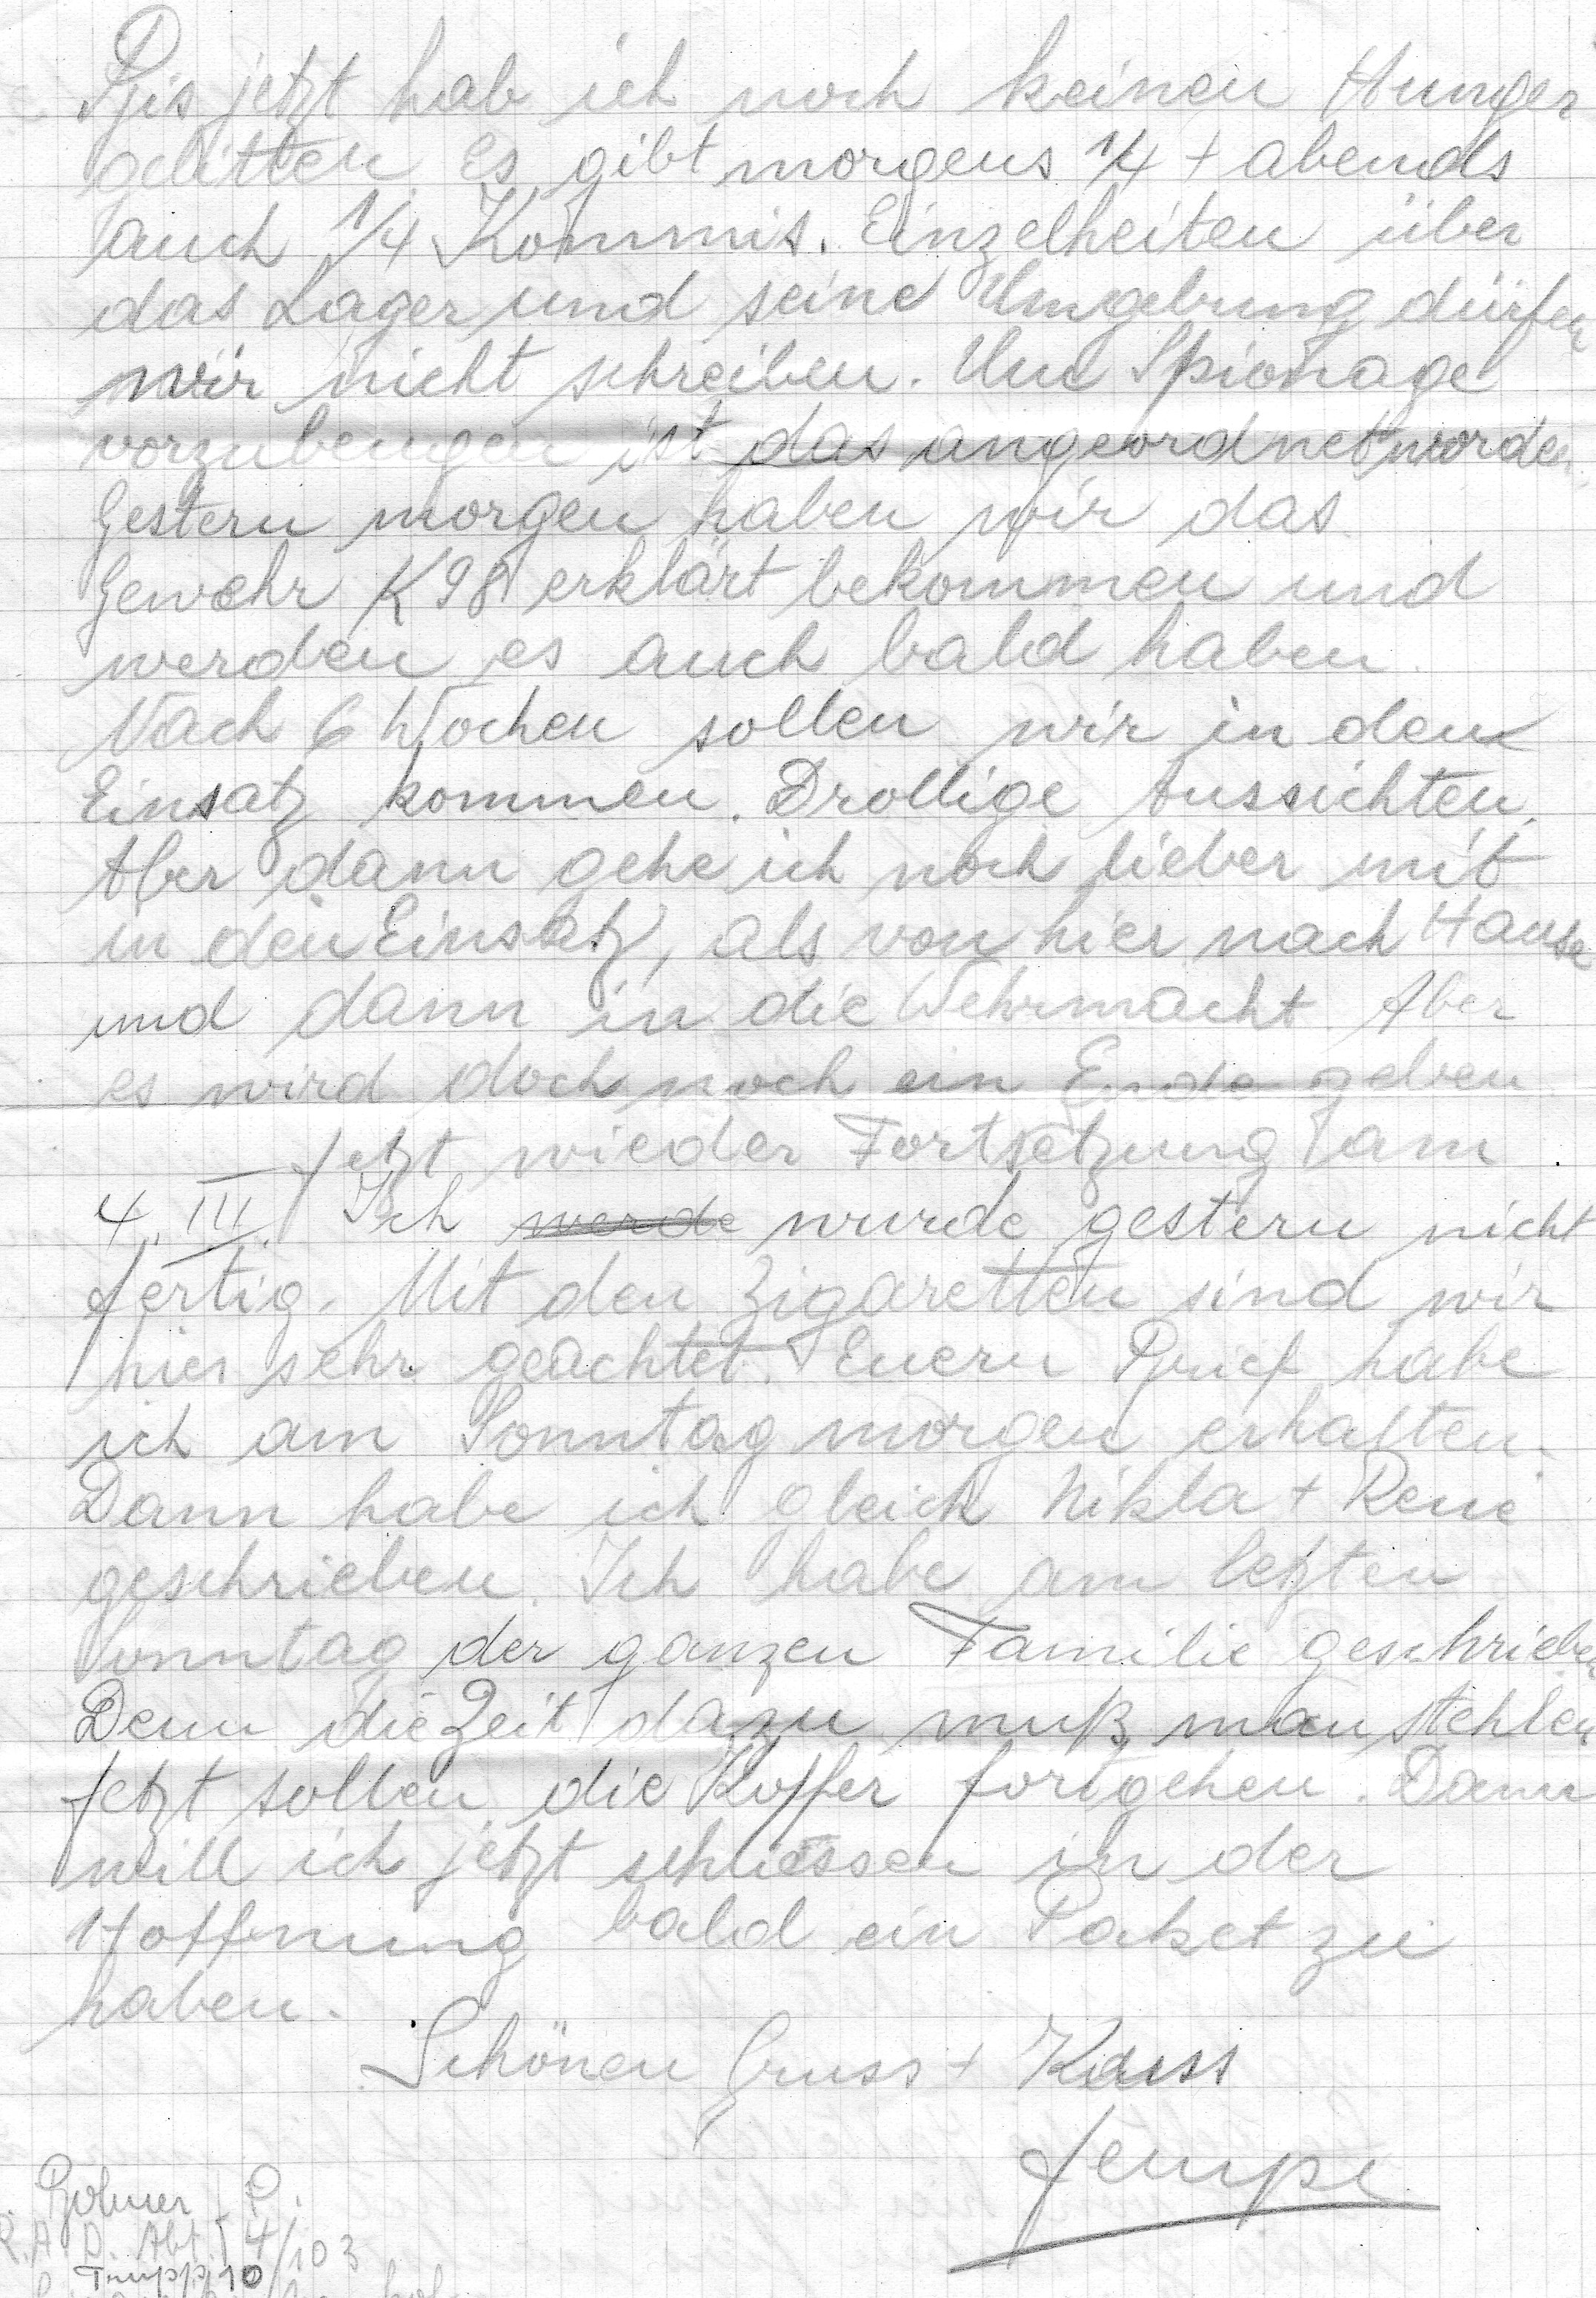 Bis jetzt hab ich noch keinen Hunger
gelitten. Es gibt morgens 1/4 + abends
auch 1/4 Kommis. Einzelheiten über
das Lager und seine Umgebung dürfen
wir nicht schreiben. Um Spionage
vorzubeugen ist das angeordnet worden.
Gestern morgen haben wir das
Gewehr K 98 erklärt bekommen und
werden es auch bald haben.
Nach 6 Wochen sollen wir in den
Einsatz kommen. Drollige Aussichten.
Aber dann gehe ich noch lieber mit
in den Einsatz, als von hier nach Hause
und dann in die Wehrmacht. Aber
es wird doch noch ein Ende geben.
Jetzt wieder Fortsetzung am
4. III. Ich werde wurde gestern nicht
fertig. Mit den Zigaretten sind wir
hier sehr geachtet. Euern Brief habe
ich am Sonntag morgen erhalten.
Dann habe ich gleich Nikla + René
geschrieben. Ich habe am letzten
Sonntag der ganzen Familie geschrieben
Denn die Zeit dazu muß man stehlen.
Jetzt sollen die Koffer fortgehen. Dann
will ich jetzt schliessen in der
Hoffnung bald ein Paket zu
haben.
Schönen Gruss + Kuss
Jempi
P.
R.A.D. Abt. 4/103
Trupp 10